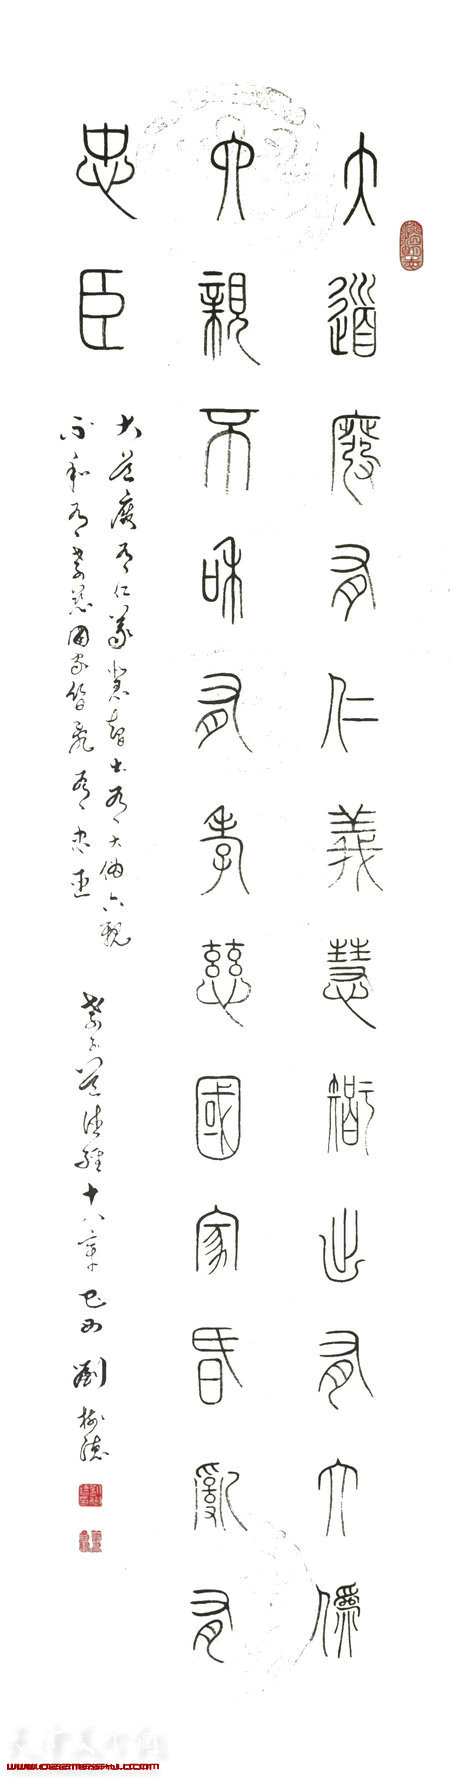 大道廢有仁義慧智出有大偽
六親不和有孝慈國家昏亂有
忠臣
大道廢有仁義慧智出有大偽六親
不和有孝慈國家昏亂有忠臣
老子道德經十八章 劉
天津美术网